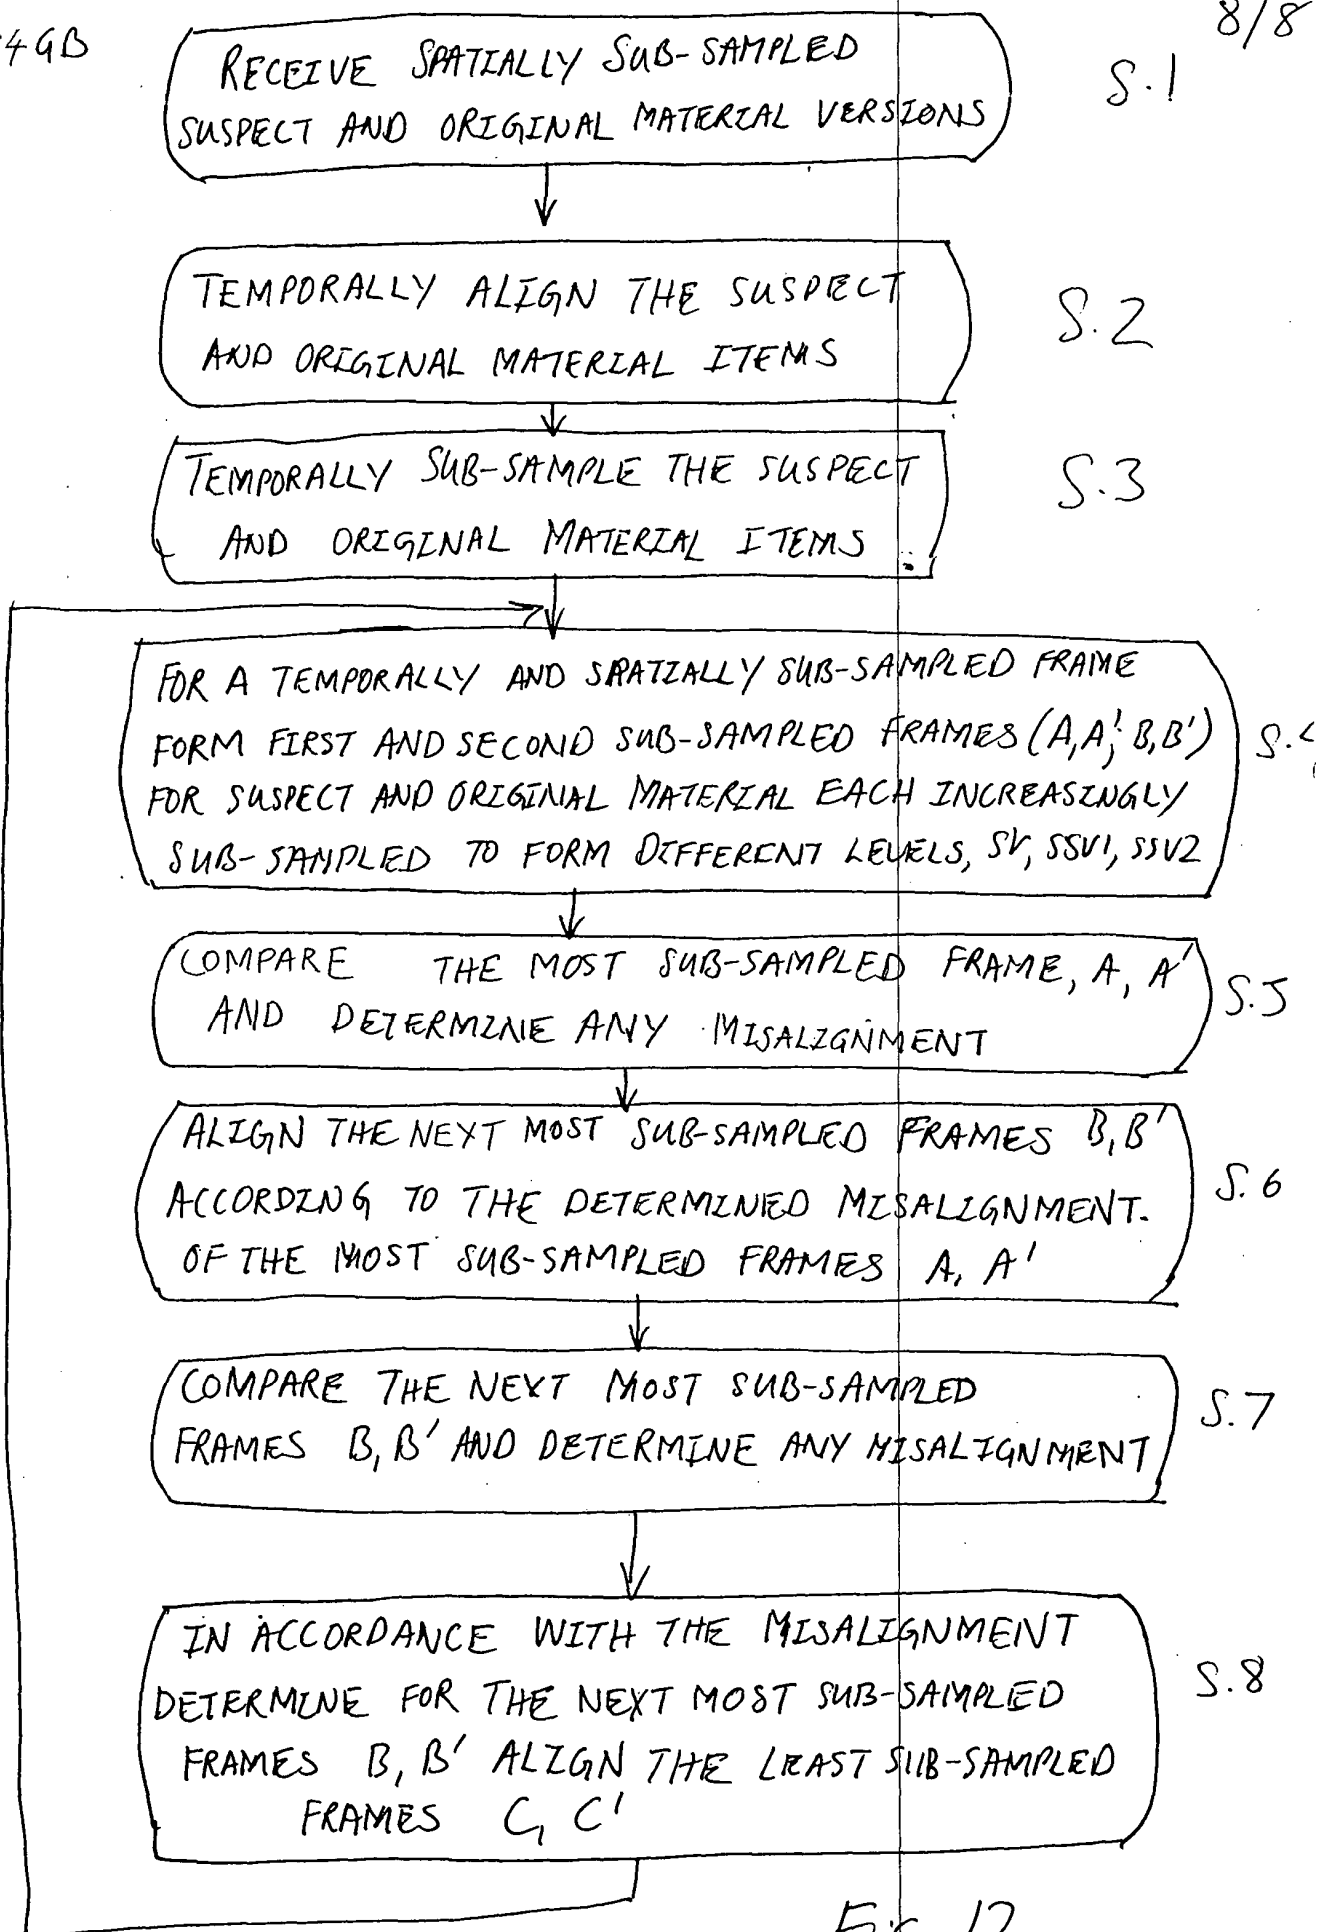 4GB
8/8
RECEIVE SPATIALLY SUB-SAMPLED
SUSPECT AND ORIGINAL MATERIAL VERSIONS
S.1
TEMPORALLY ALIGN THE SUSPECT
AND ORIGINAL MATERIAL ITEMS
S.2
TEMPORALLY SUB-SAMPLE THE SUSPECT
AND ORIGINAL MATERIAL ITEMS
S.3
FOR A TEMPORALLY AND SPATIALLY SUB-SAMPLED FRAME
FORM FIRST AND SECOND SUB-SAMPLED FRAMES (A,A'; B,B')
FOR SUSPECT AND ORIGINAL MATERIAL EACH INCREASINGLY
SUB-SAMPLED TO FORM DIFFERENT LEVELS, SV, SSV1, SSV2
COMPARE THE MOST SUB-SAMPLED FRAME, A, A'
AND DETERMINE ANY MISALIGNMENT
S.5
ALIGN THE NEXT MOST SUB-SAMPLED FRAMES B,B'
ACCORDING TO THE DETERMINED MISALIGNMENT.
OF THE MOST SUB-SAMPLED FRAMES A, A'
S.6
COMPARE THE NEXT MOST SUB-SAMPLED
FRAMES B,B' AND DETERMINE ANY MISALIGNMENT
S.7
IN ACCORDANCE WITH THE MISALIGNMENT
DETERMINE FOR THE NEXT MOST SUB-SAMPLED
FRAMES B,B' ALIGN THE LEAST SUB-SAMPLED
FRAMES C, C'
S.8